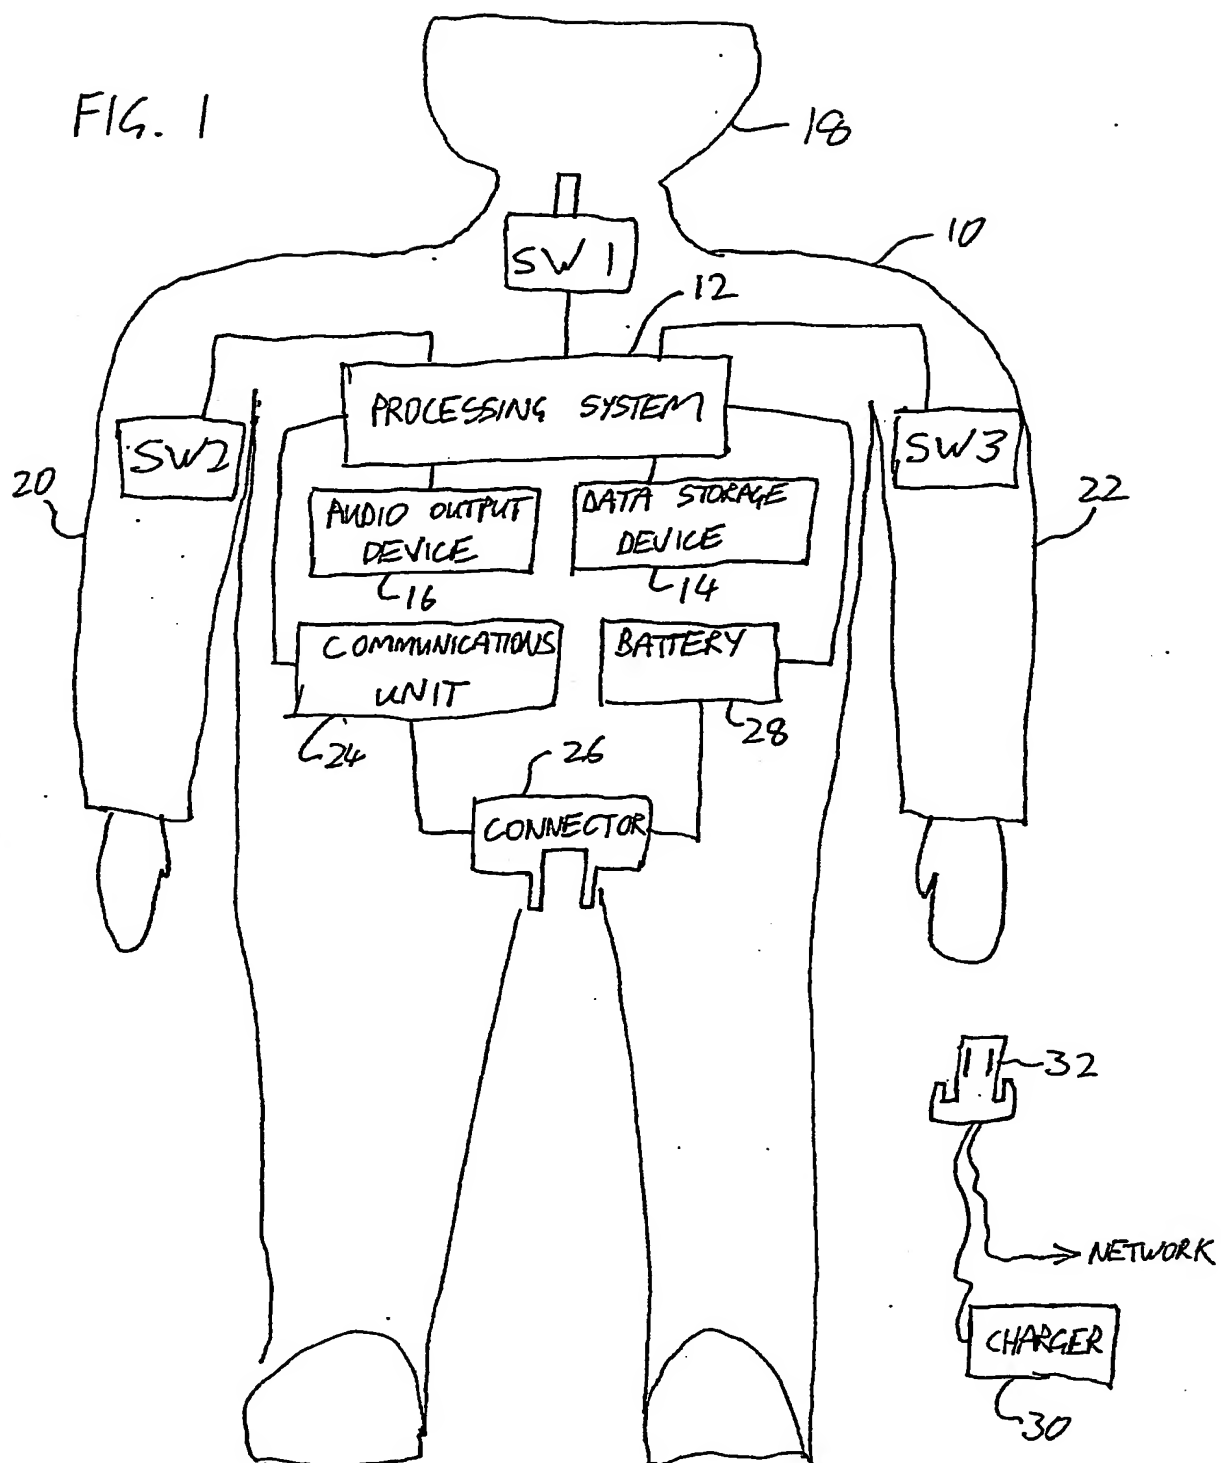 FIG. 1
18
SW1
10
12
PROCESSING SYSTEM
SW2
SW3
20
22
AUDIO OUTPUT
DEVICE
DATA STORAGE
DEVICE
16
14
COMMUNICATIONS
UNIT
BATTERY
24
28
26
CONNECTOR
32
NETWORK
CHARGER
30